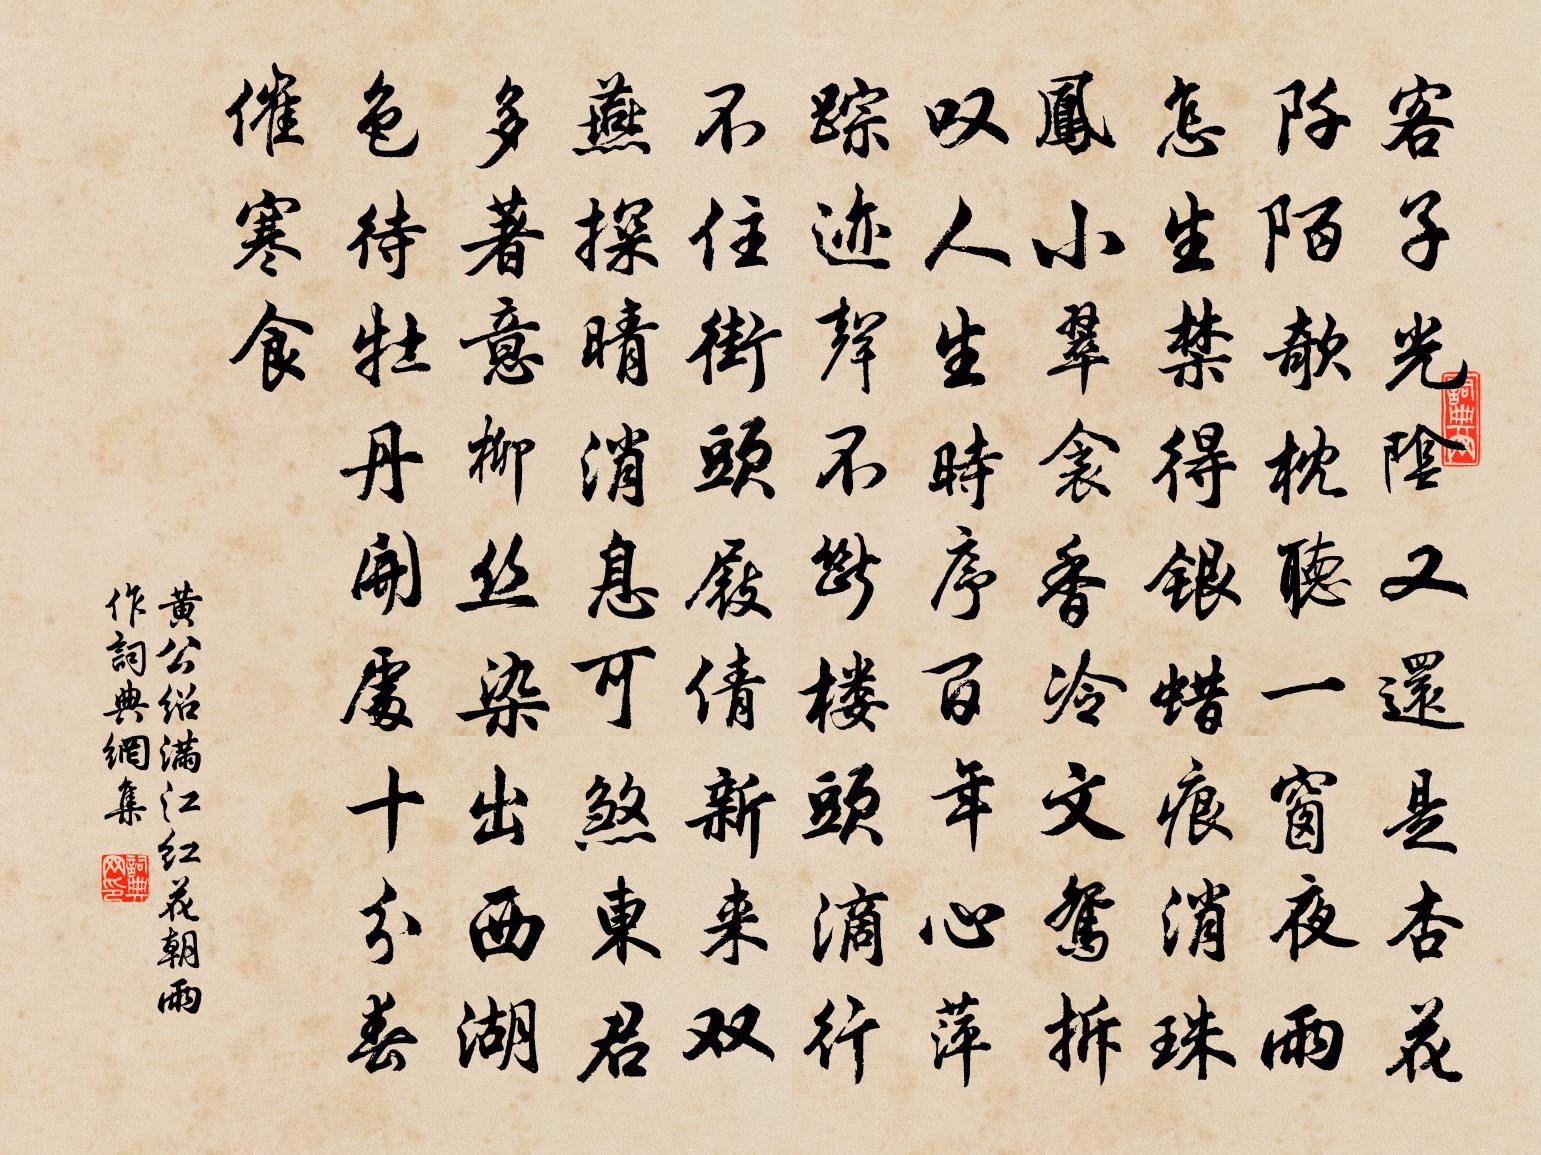 客子光陰又還是杏花
阡陌欹枕聽一窗夜雨
怎生禁得銀蜡痕消珠
鳳小翠衾香冷文鴛拆
叹人生時序百年心萍
踪迹聲不斷楼頭滴行
不住街頭屐倩新来双
燕探晴消息可煞東君
多著意柳丝染出西湖
色待牡丹開處十分春
催寒食
黄公绍满江红花朝雨
作詞典網集
詞典网
詞典网印